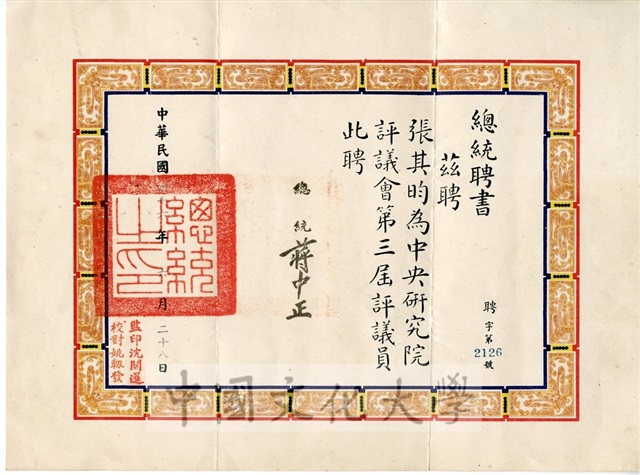 總統聘書
聘字第2126號
茲聘
張其昀為中央研究院
評議會第三屆評議員
此聘
總統 蔣中正
中華民國 年 月二十八日
總統之印
監印沈開運
校對姚 發
中國文化大學